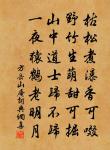 枯松煮瀑香可啜
野竹生萌甜可掘
山中道士歸不歸
一夜猿鶴老明月
方岳山居詞典網集